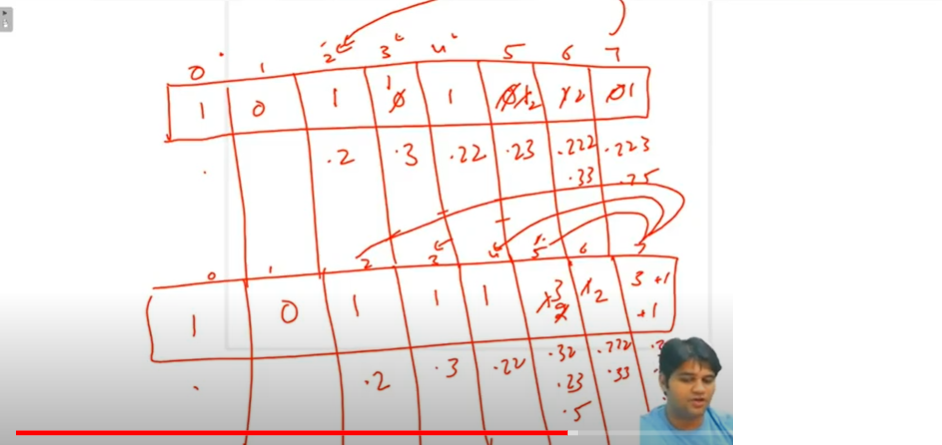 0 1 2 3 4 5 6 7
1 0 1 1 0 1 0 1 2 1 2 0 1
. .2 .3 .22 .23 .222 .223
.33 .25
0 1 2 3 4 5 6 7
1 0 1 1 1 1 3 2 1 2 3 +1
+1
. .2 .3 .22 .32 .222
.23 .33
.5